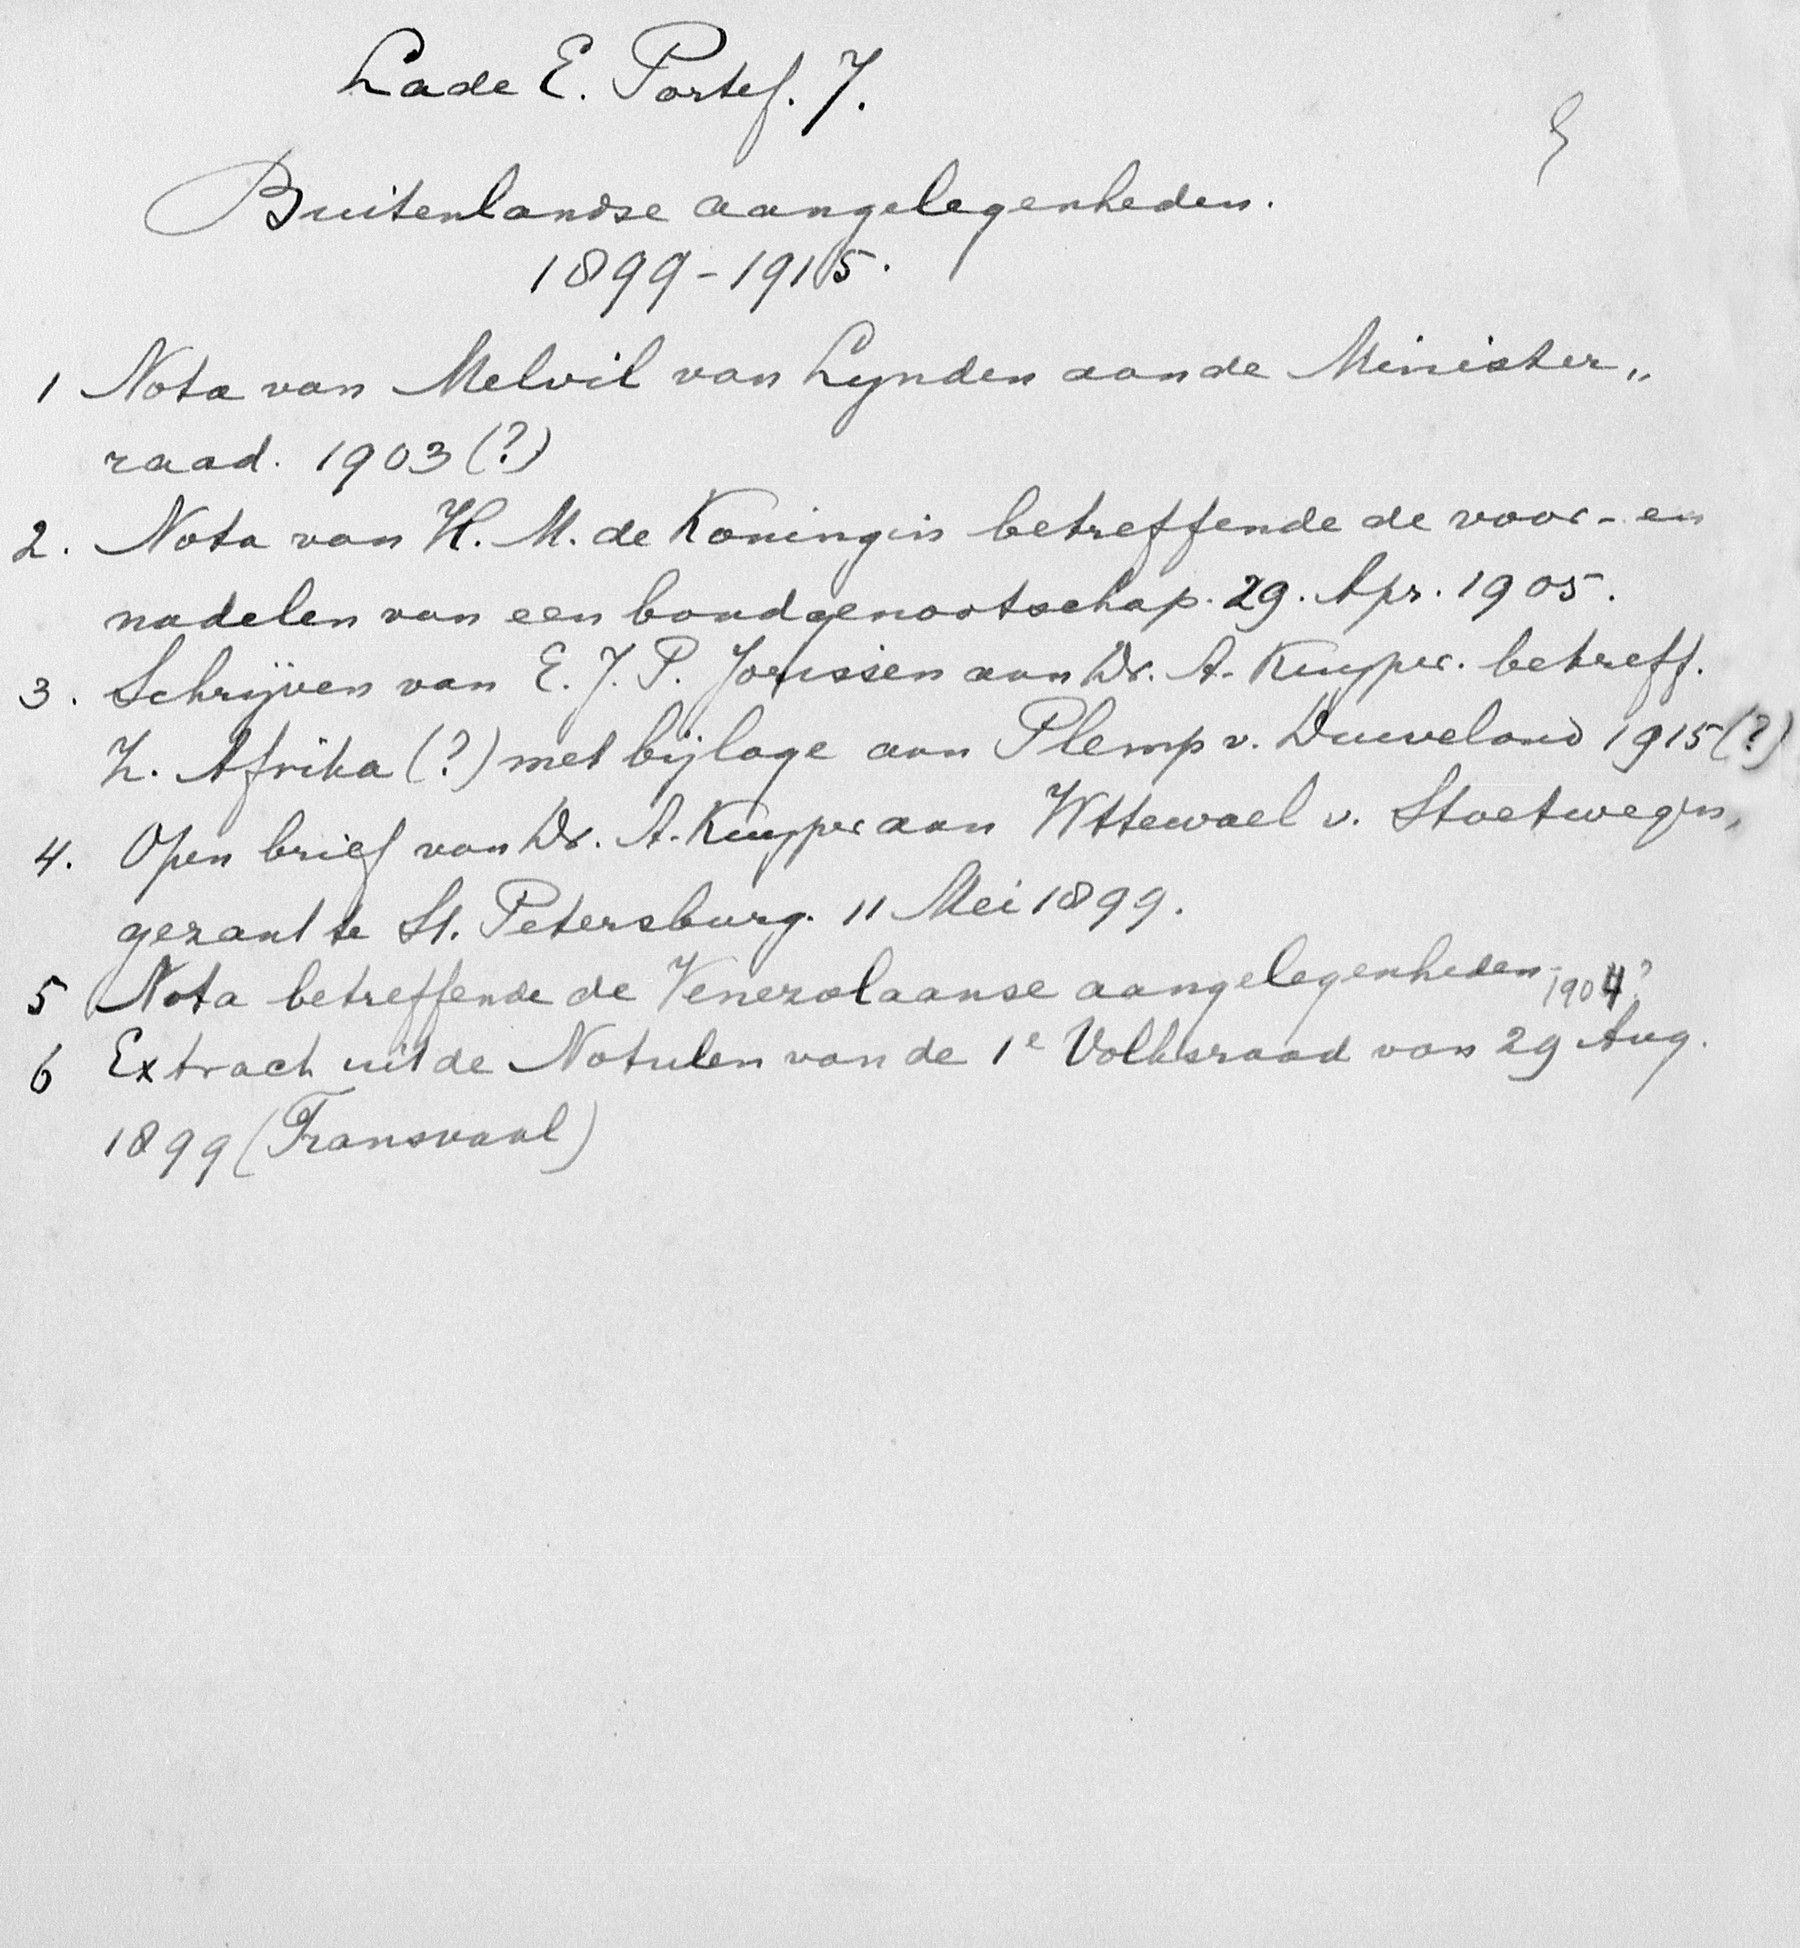 Lade E. Portef. 7.
Buitenlandse aangelegenheden.
1899-1915.
1 Nota van Melvil van Lynden aan de Minister„
raad. 1903 (?)
2. Nota van H. M. de Koningin betreffende de voor- en
nadelen van een bondgenootschap. 29. Apr. 1905.
3. Schrijven van E. J. P. Jorissen aan Dr. A. Kuyper. betreff.
Z. Afrika (?) met bijlage aan Plemp v. Duiveland 1915 (?)
4. Open brief van Dr. A. Kuyper aan Wttewael v. Stoetwegen,
gezant te St. Petersburg. 11 Mei 1899.
5 Nota betreffende de Venezolaanse aangelegenheden 1904?
6 Extract uit de Notulen van de 1e Volksraad van 29 Aug.
1899 (Transvaal)